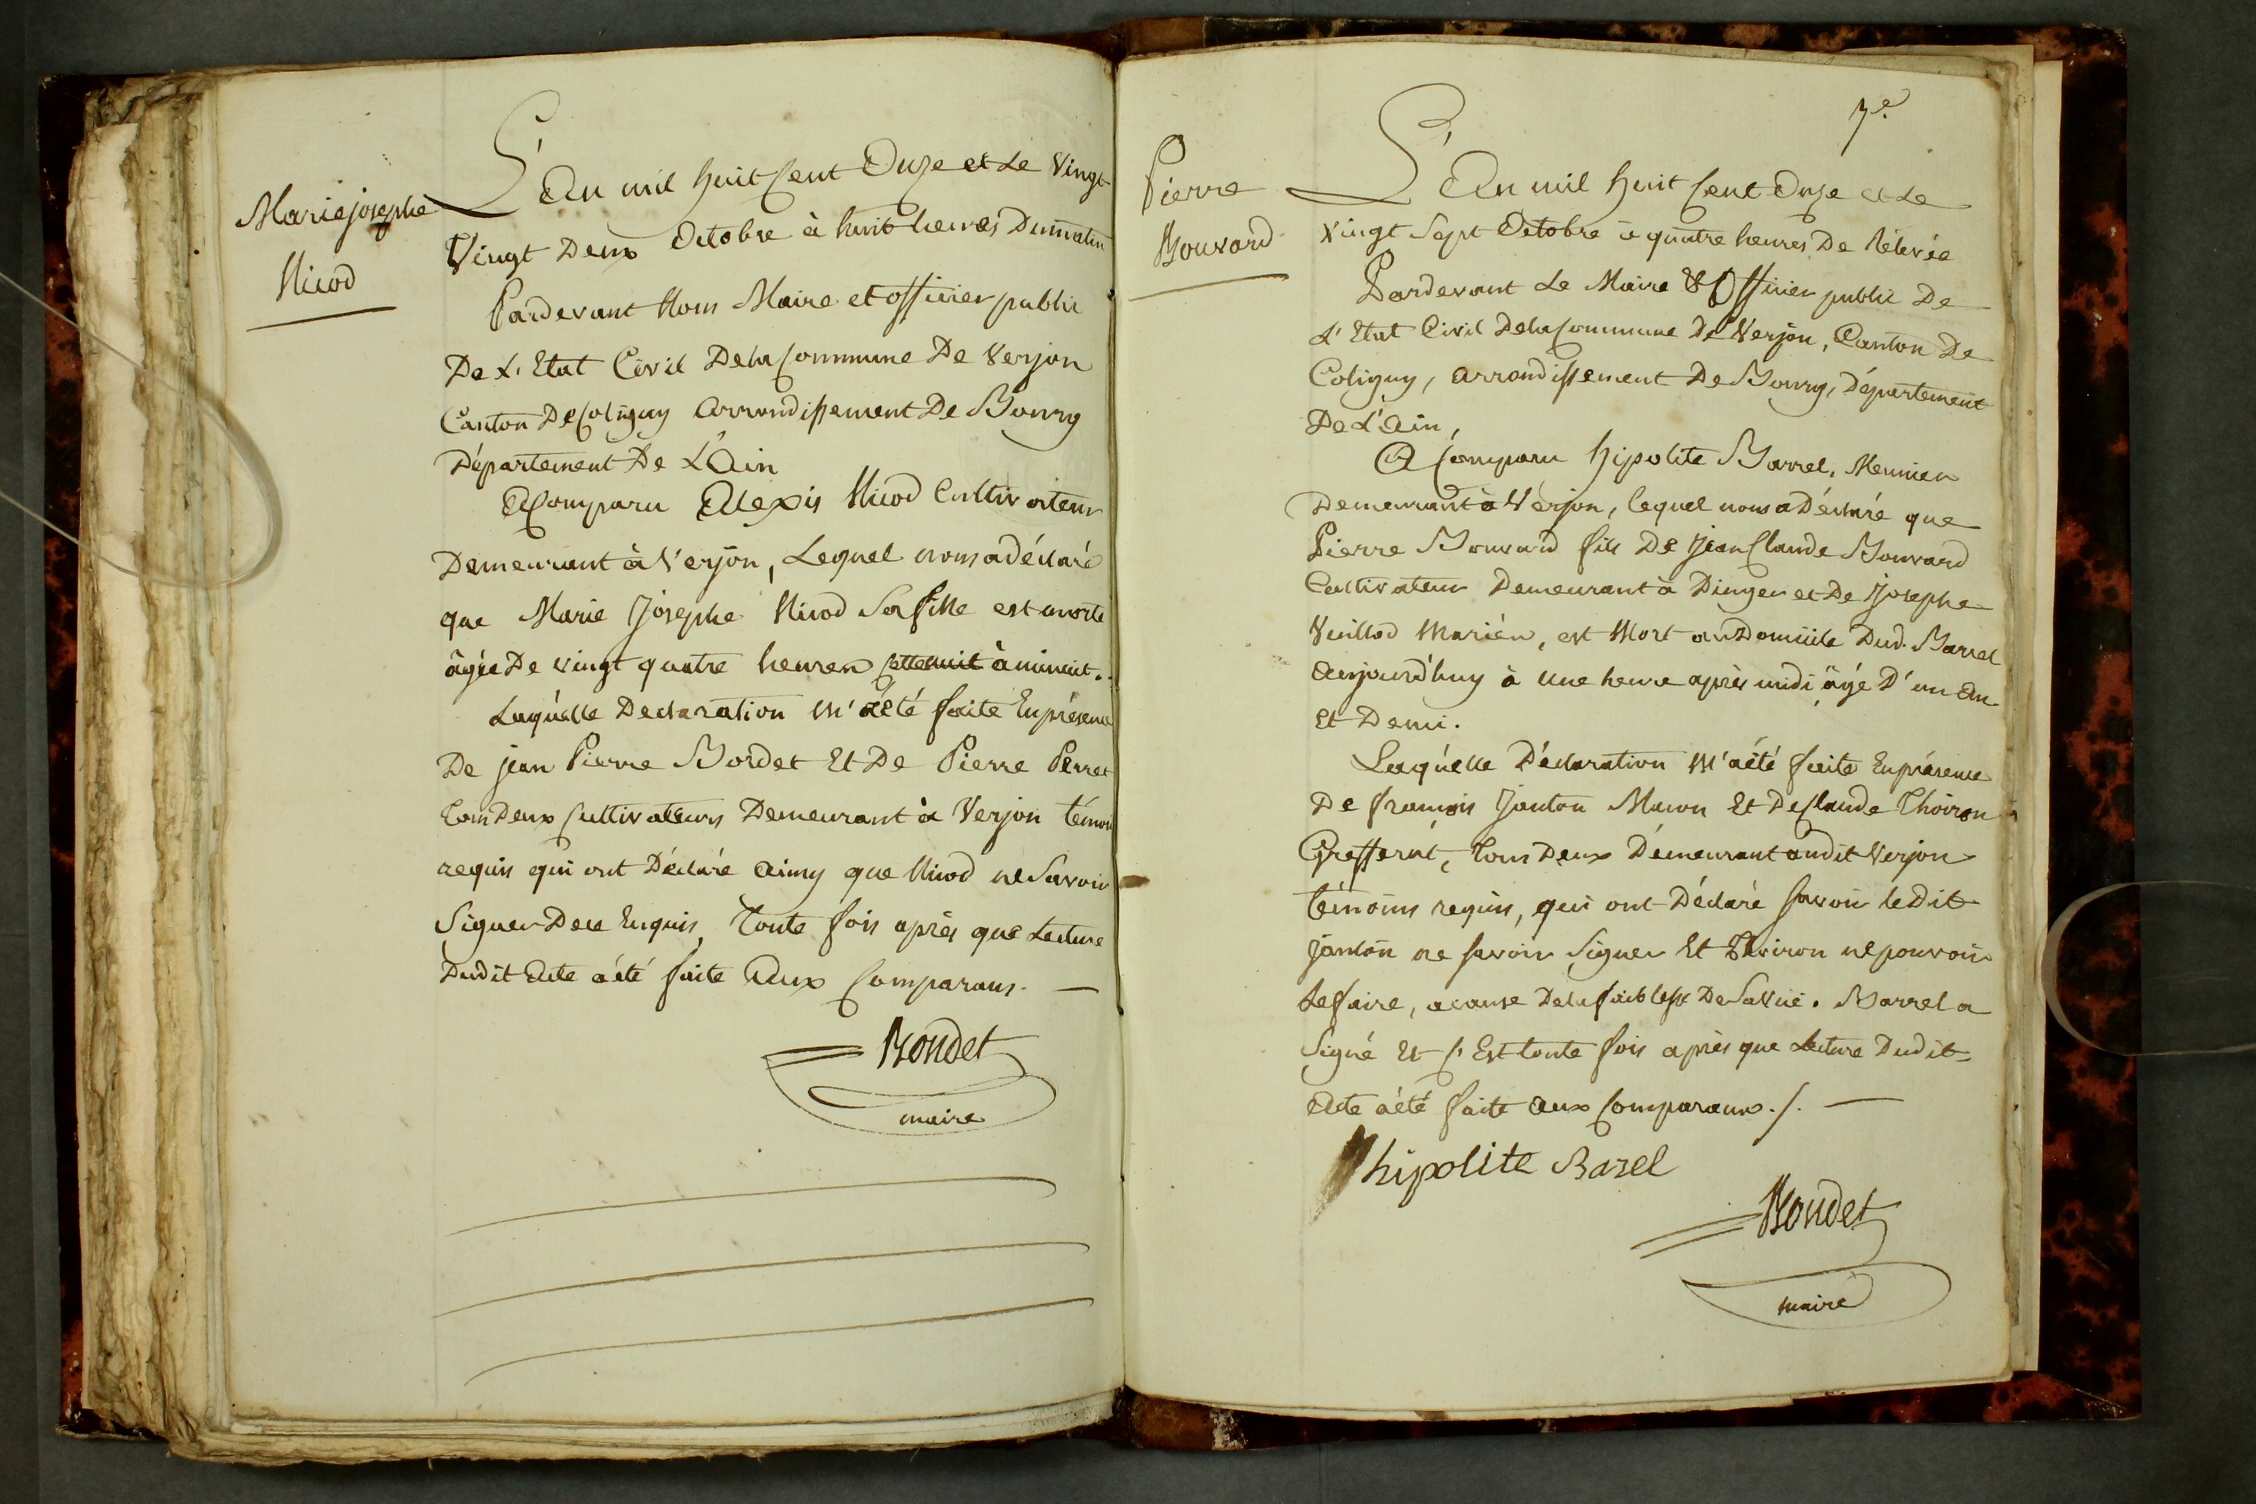 Marie josephe
Nicod
L'An mil huit Cent Onze et Le Vingt
Vingt Deux Octobre à huit heures Du matin
Pardevant Nous Maire et officier public
De L'Etat Civil Dela Commune De Verjon
Canton De Coligny Arrondissement De Bourg
Département De L'Ain
A Comparu Alexis Nicod Cultivateur
Demeurant à Verjon, Lequel nous a déclaré
que Marie Josephe Nicod Sa fille est morte
âgée De vingt quatre heures cette nuit à minuit.
Laquelle Declaration m'a été faite En présence
De jean Pierre Bordet Et De Pierre Perret
tous Deux Cultivateurs Demeurant à Verjon témoins
requis qui ont Déclaré ainsy que Nicod ne Savoir
Signer De ce Enquis, Toute fois après que Lecture
Dudit Acte a été faite Aux Comparans. —
Bondet
maire
7e.
Pierre
Bouvard
L'An mil huit Cent Onze et Le
vingt Sept Octobre à quatre heures De Rélevée
Pardevant Le Maire & Officier public De
L'Etat Civil Dela Commune De Verjon, Canton De
Coligny, arrondissement De Bourg, Département
De L'Ain,
A Comparu hipolite Barrel, Meunier
Demeurant à Verjon, lequel nous a Déclaré que
Pierre Bouvard fils De Jean Claude Bouvard
Cultivateur Demeurant à Dingier et De Josephe
Vuillod Mariés, est Mort au Domicile Dud. Barrel
Aujourd'huy à une heure après midi âgé D'un An
Et Demi.
Laquelle Déclaration m'a été faite En présence
De françois Janton Maçon Et De Claude Thoiron
tous Deux Démeurant audit Verjon
témoins requis, qui ont Déclaré Savoir le Dit
janton ne Savoir Signer Et Thoiron ne pouvoir
Le faire, a cause Dela foiblesse De Sa Vue. Barrel a
Signé Et C'Est toute fois après que Lecture Dudit
Acte a été faite Aux Comparans ./. —
hipolite Barel
Bondet
maire